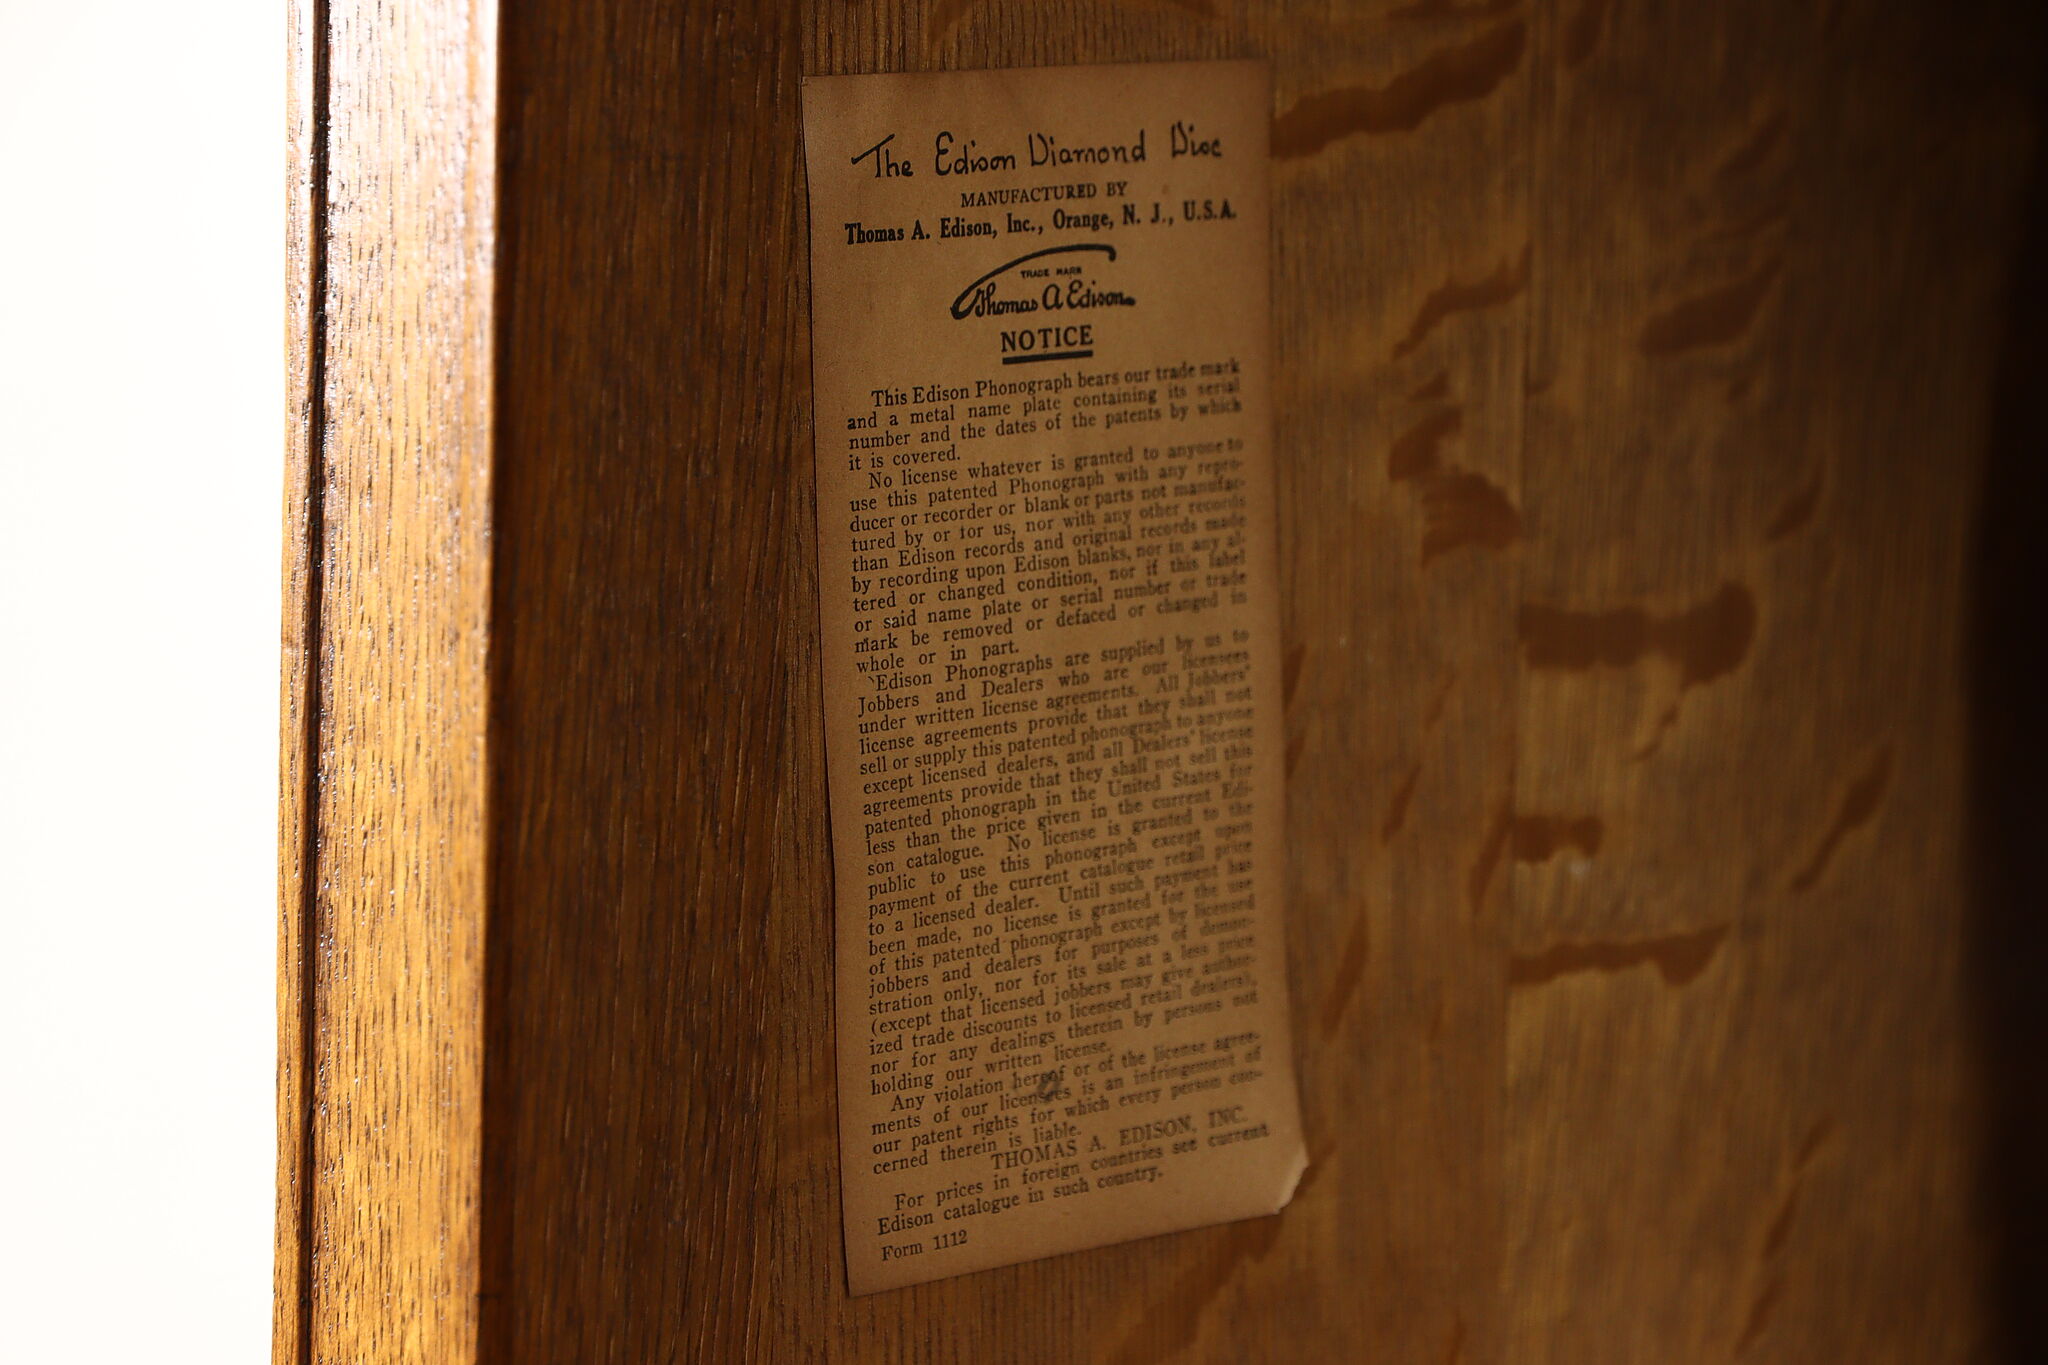 The Edison Diamond Disc
MANUFACTURED BY
Thomas A. Edison, Inc., Orange, N. J., U.S.A.
TRADE MARK
Thomas A Edison
NOTICE
This Edison Phonograph bears our trade mark
and a metal name plate containing its serial
number and the dates of the patents by which
it is covered.
No license whatever is granted to anyone to
use this patented Phonograph with any repro-
ducer or recorder or blank or parts not manufac-
tured by or for us, nor with any other records
than Edison records and original records made
by recording upon Edison blanks, nor in any al-
tered or changed condition, nor if this label
or said name plate or serial number or trade
mark be removed or defaced or changed in
whole or in part.
Edison Phonographs are supplied by us to
Jobbers and Dealers who are our licensees
under written license agreements. All Jobbers'
license agreements provide that they shall not
sell or supply this patented phonograph to anyone
except licensed dealers, and all Dealers' license
agreements provide that they shall not sell this
patented phonograph in the United States for
less than the price given in the current Edi-
son catalogue. No license is granted to the
public to use this phonograph except upon
payment of the current catalogue retail price
to a licensed dealer. Until such payment has
been made, no license is granted for the use
of this patented phonograph except by licensed
jobbers and dealers for purposes of demon-
stration only, nor for its sale at a less price
(except that licensed jobbers may give author-
ized trade discounts to licensed retail dealers),
nor for any dealings therein by persons not
holding our written license.
Any violation hereof or of the license agree-
ments of our licensees is an infringement of
our patent rights for which every person con-
cerned therein is liable.
THOMAS A. EDISON, INC.
For prices in foreign countries see current
Edison catalogue in such country.
Form 1112